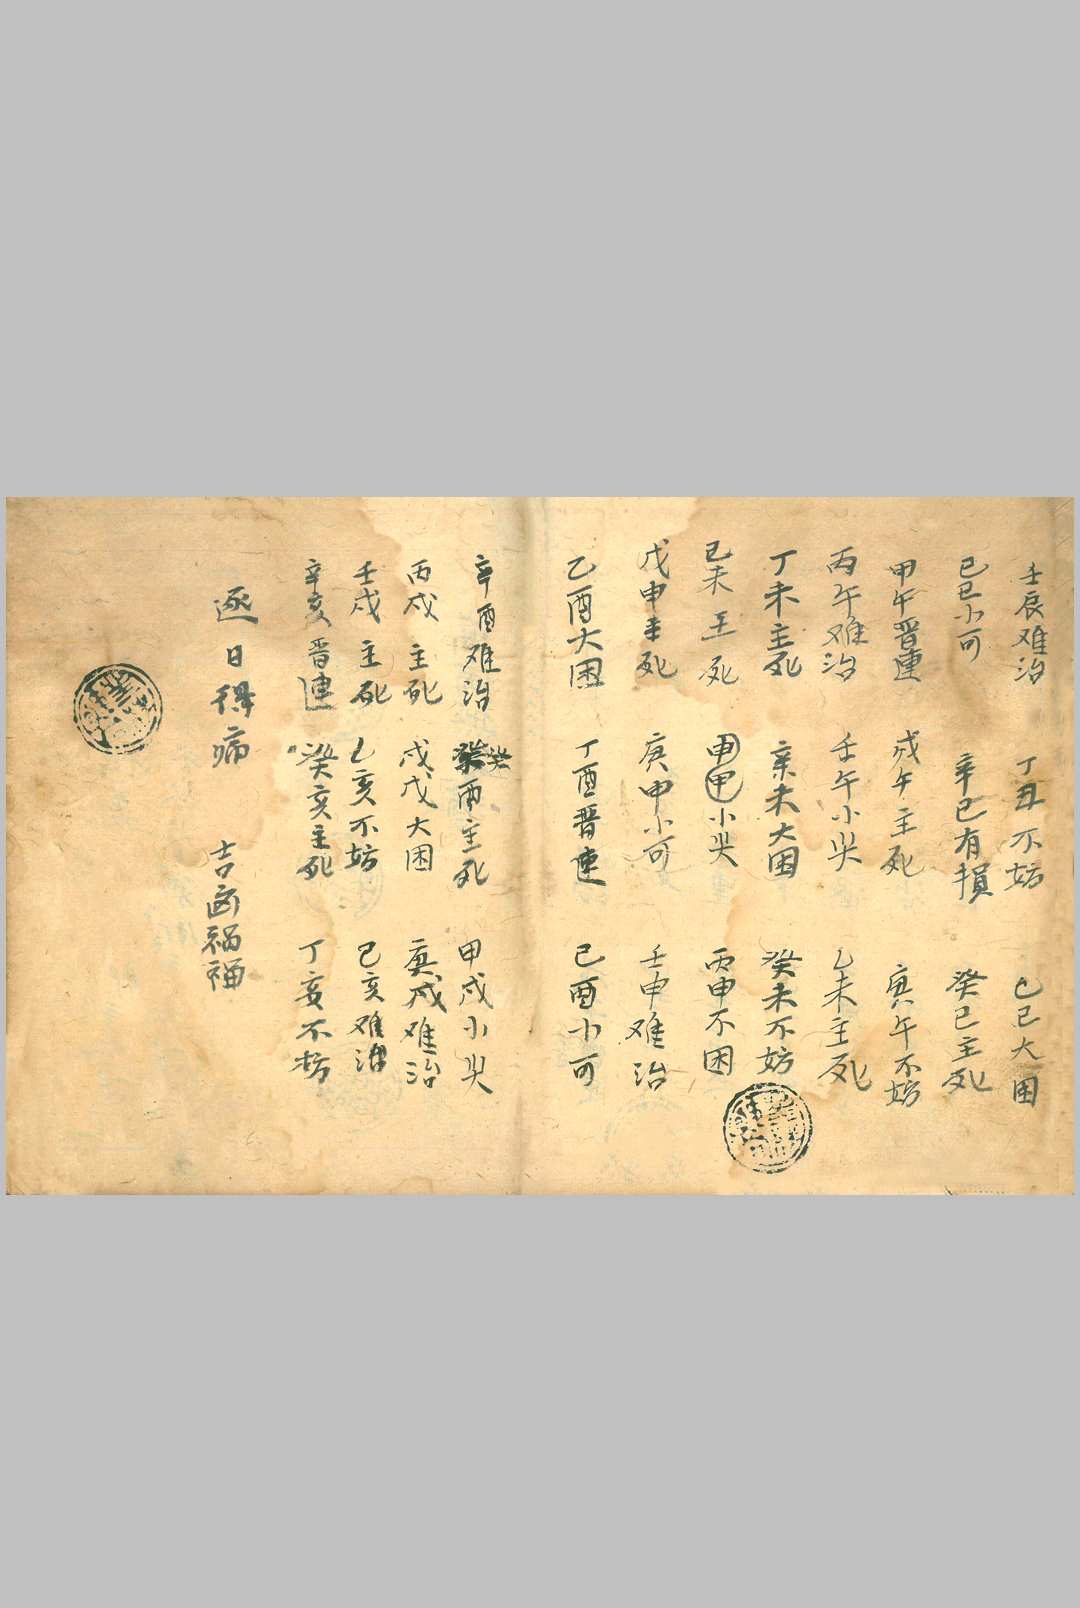 壬辰难治 丁丑不妨 己巳大困
己巳小可 辛巳有損 癸巳主死
甲午晋連 戍午主死 庚午不妨
丙午难治 壬午小哭 乙未主死
丁未主死 辛未大困 癸未不妨
己未王死 甲小哭 丙申不困
戊申主死 庚申小可 壬申难治
乙酉大困 丁酉晋連 己酉小可
辛酉难治 癸酉主死 甲戍小哭
丙戍主死 戊戍大困 庚戍难治
壬戍主死 乙亥不妨 己亥难治
辛亥晋連 癸亥主死 丁亥不妨
逐日得病 吉凶禍福